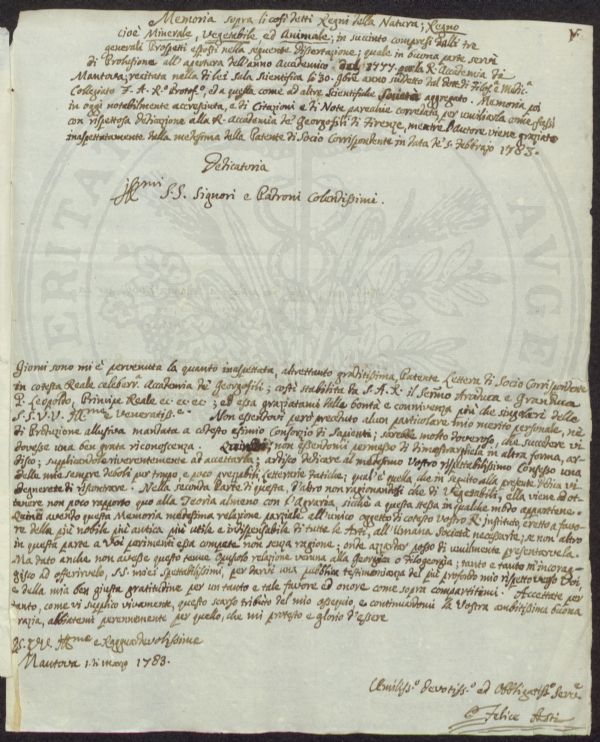 Memoria sopra li così detti Regni della Natura; Regno
cioè Minerale, Vegetabile ed Animale; in succinto compresi dalli tre
generali Prospetti esposti nella seguente Dissertazione; quale in buona parte servì
di Prolusione all'apertura dell'anno Accademico dal 1777 quella R. Accademia di
Mantova; recitata nella di lei Sala Scientifica li 30. 9bre anno suddetto dal dott. di Filos. e Medic.
Collegiato F. A. R. Protof.o, ed a quella come ad altre Scientifiche Società aggregato. Memoria poi
in oggi notabilmente accresciuta, e di Citazioni e di Note parecchie corredata per umiliarla come fassi
con rispettosa dedicazione alla R. Accademia de' Georgofili di Firenze, mentre l'Autore viene graziato
inaspettatamente dalla medesima della Patente di Socio Corrispondente in data de' 5. Febbrajo 1783.
Dedicatoria
Ill.mi
S.S. Signori e Padroni Colendissimi.
Giorni sono mi è pervenuta la quanto inaspettata, altrettanto graditissima, Patente Lettera di Socio Corrispondente
in cotesta Reale celeberr. Accademia de' Georgofili; costì stabilita da S.A.R. il Sermo Arciduca e Granduca
P. Leopoldo, Principe Reale ec. ec. ec.; ed essa graziatami dalla bontà e connivenza più che singolari delle
S.S.V.V. Ill.me Veneratiss.e Non essendovi però preceduto alcun particolare mio merito personale, nè
di Produzione allusiva mandata a cotesto esimio Consorzio di Sapienti; sarebbe molto doveroso, che succedere vi
dovesse una ben grata riconoscenza. Quindi; non essendomi permesso di dimostrarvela in altra forma, ar-
disco; supplicandole riverentemente ad accettarla; ardisco dedicare al medesimo Vostro rispettabilissimo Consesso una
delle mie sempre deboli per tempo e poco pregiabili Letterarie Fatiche; qual'è quella che in seguito alla presente Dedica vi
degnerete di riscontrare. Nella seconda Parte di questa, d'altro non ragionandosi che di Vegetabili, ella viene ad ot-
tenere non poco rapporto quo alla Teoria almeno con l'Agraria, sicchè a questa stessa in qualche modo appartiene.
Quindi avendo questa Memoria medesima relazione parziale all'unico oggetto di cotesto Vostro R. instituto, eretto a favo-
re della più nobile più antica più utile e indispensabile di tutte le Arti, all'Umana Società necessarie; se non altro
in questa parte a Voi parimenti essa compete non senza ragione; onde azzardar posso di umilmente presentarvela.
Ma dato anche non avesse questo tenue Opuscolo relazione veruna alla Georgica o Filogeorgia; tanto e tanto m'incorag-
gisco ad offerirvelo, SS. miei spettabilissimi, per darvi una pubblica testimonianza del più profondo mio rispetto verso Voi
e della mia ben giusta gratitudine per un tanto e tale favore ed onore come sopra compartitomi. Accettate per
tanto, come vi supplico vivamente, questo scarso tributo del mio ossequio e continuandomi la Vostra ambitissima buona
grazia, abbiatemi perennemente per quello, che mi protesto e glorio d'essere
Ill.me e Ragguardevolissime
Mantova 1. di marzo 1783.
Umiliss.o Devotiss.o ed Obbligatiss.o Serv.e
Felice Asti
VERITAS
AUGE